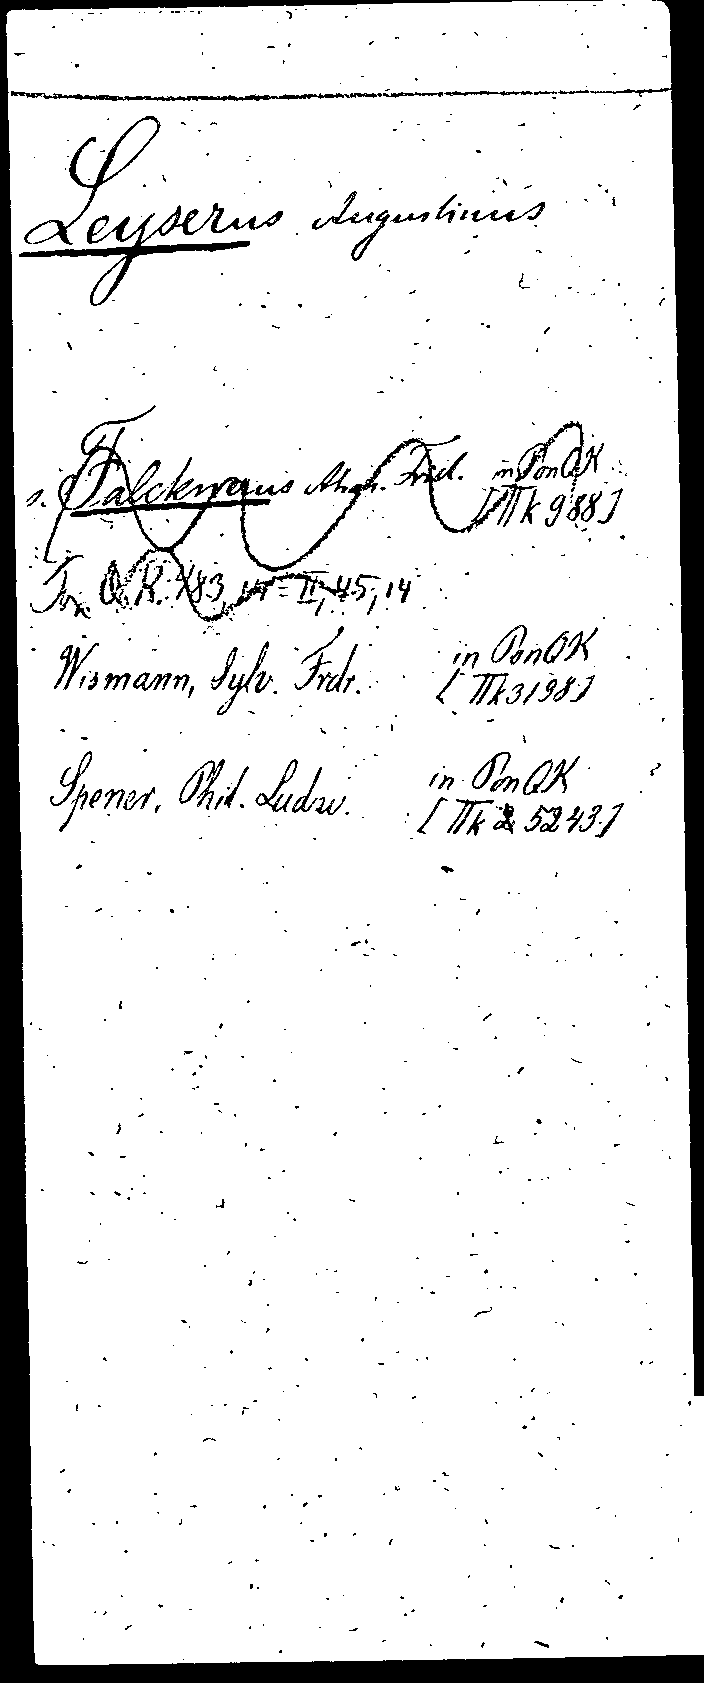 Leyserus Augustinus
s. Falcknerus Abrah. Fried. in PonQK
[IIk 988]
Pon Q.K. 183, 14 = II, 45, 14
Wismann, Sylv. Frdr. in PonQK
[IIk 3198]
Spener, Phil. Ludw. in PonQK
[IIk 5243]